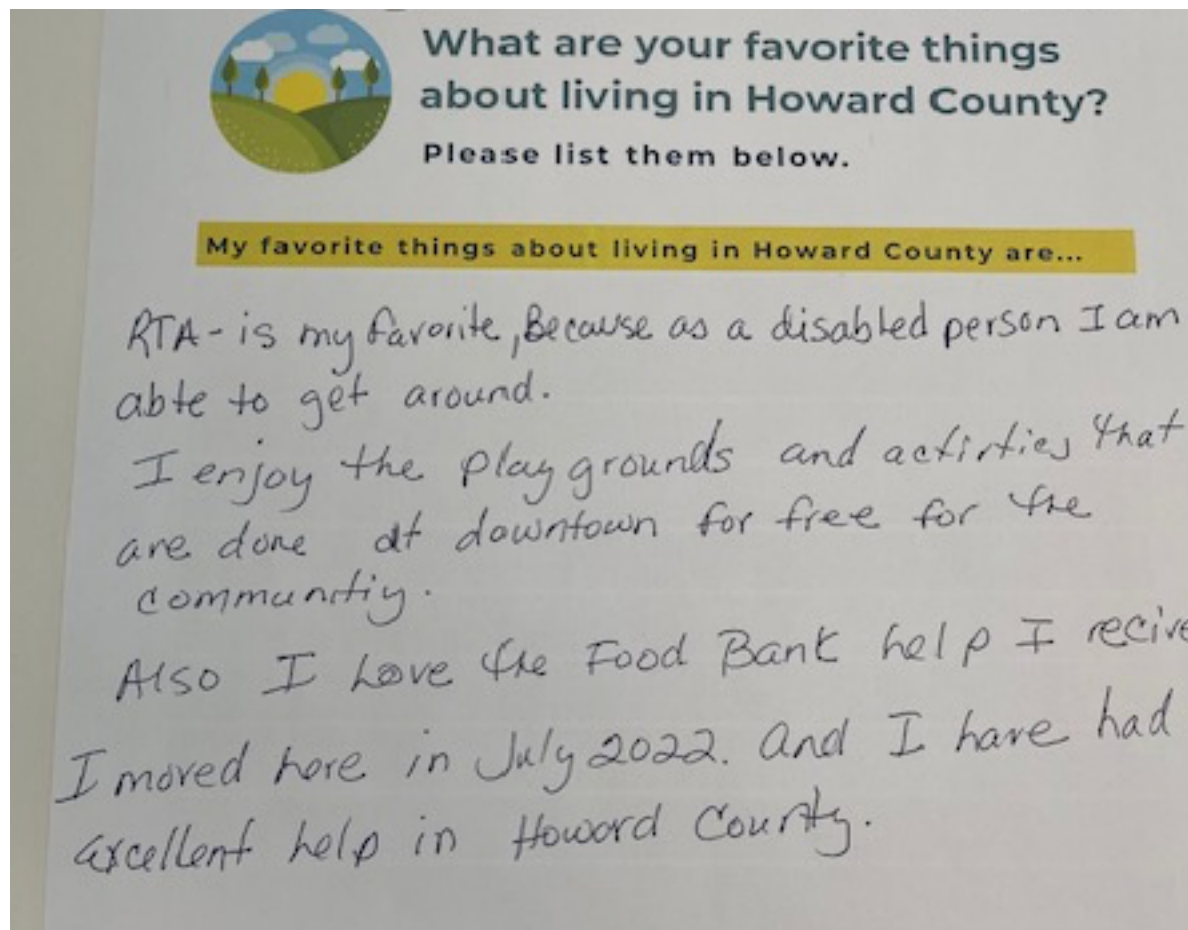 What are your favorite things
about living in Howard County?
Please list them below.
My favorite things about living in Howard County are...
RTA - is my favorite, Because as a disabled person I am
able to get around.
I enjoy the play grounds and activties that
are done at downtown for free for the
communitiy.
Also I Love the Food Bank help I recive
I moved here in July 2022. And I have had
excellent help in Howard County.